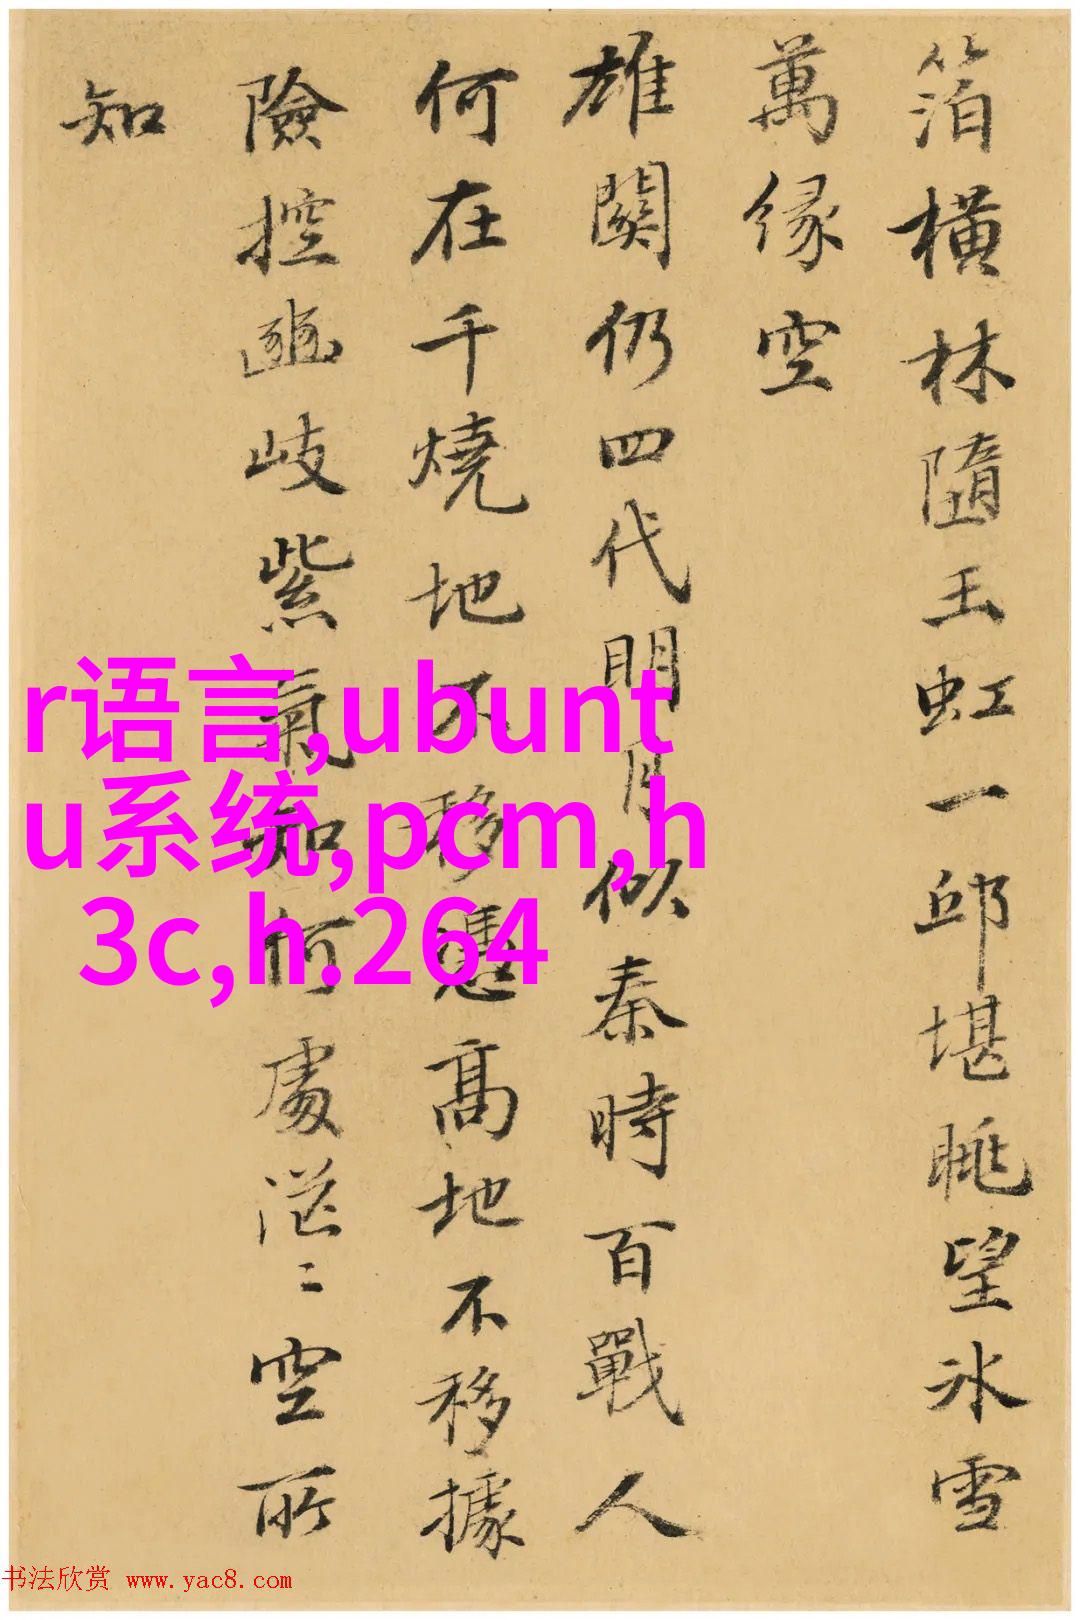 箔橫林隨玉虹一邱堪眺望冰雪
萬緣空
雄關仍四代明月似秦時百戰人
何在千燒地不移憑高地不移據
險控幽岐紫氣知何處茫〻空所
知
r语言,ubunt
u系统,pcm,h
3c,h.264
书法欣赏 www.yac8.com